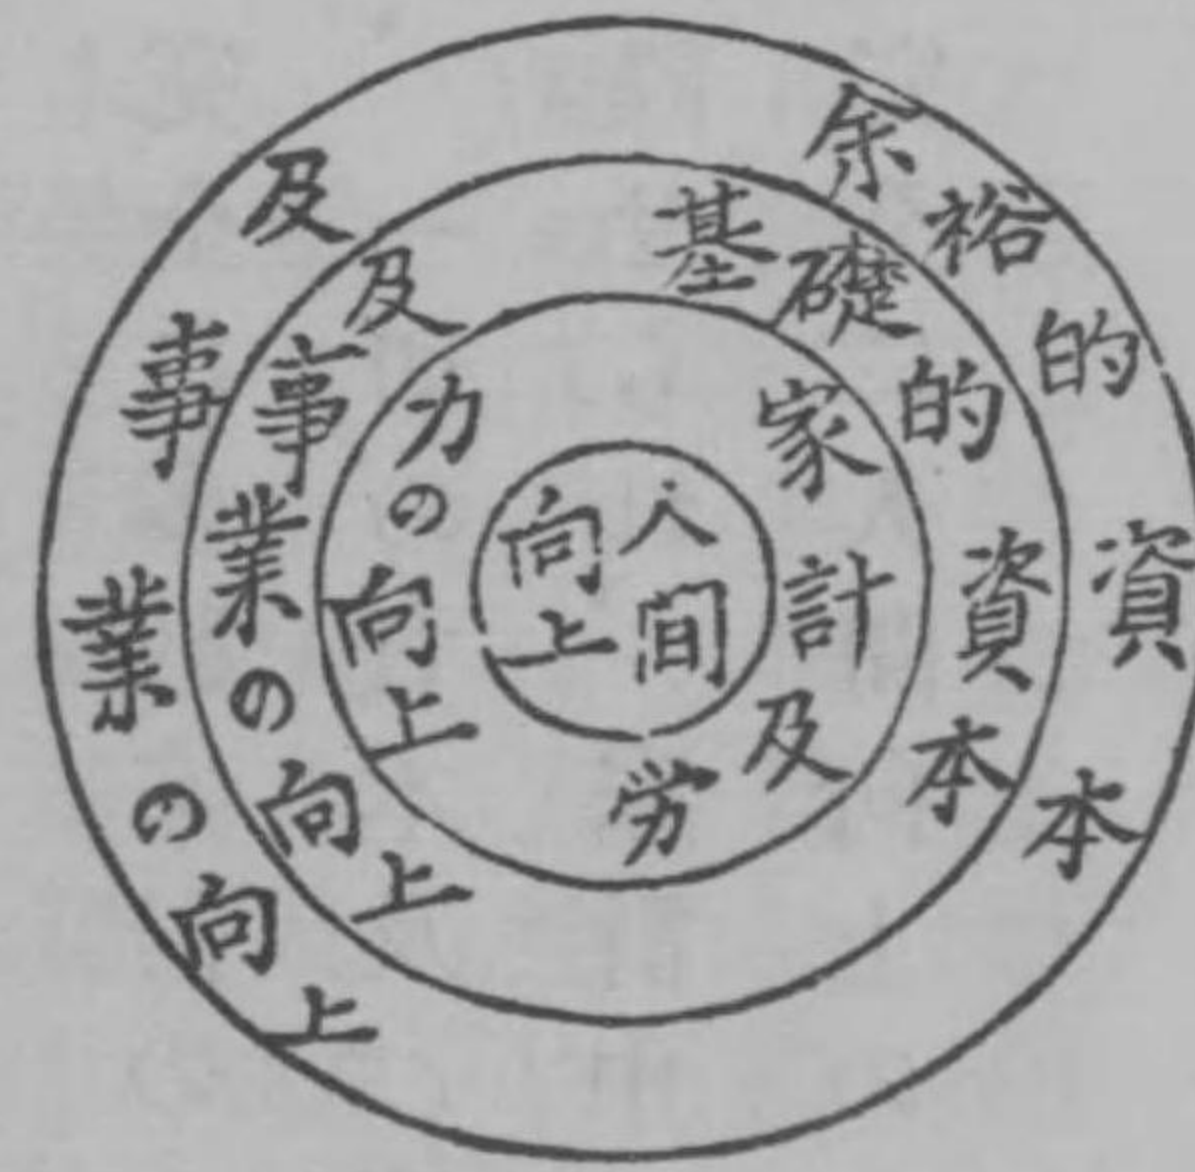 人間
向上
家計及労
力の向上
基礎的資本
及事業の向上
余裕的資本
及事業の向上